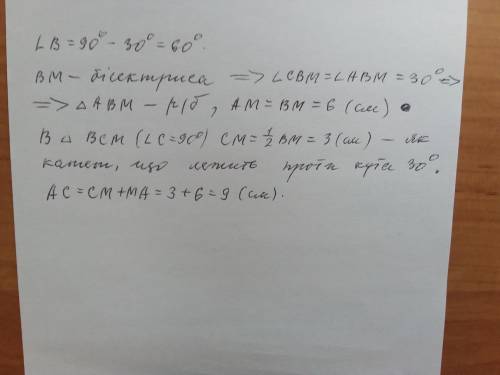 ∠B = 90° - 30° = 60°.
BM - бісектриса => ∠CBM = ∠ABM = 30° =>
=> △ ABM - р/б, AM = BM = 6 (см)
В △ BCM (∠C = 90°) CM = ½ BM = 3 (см) - як
катет, що лежить проти кута 30°.
AC = CM + MA = 3 + 6 = 9 (см).